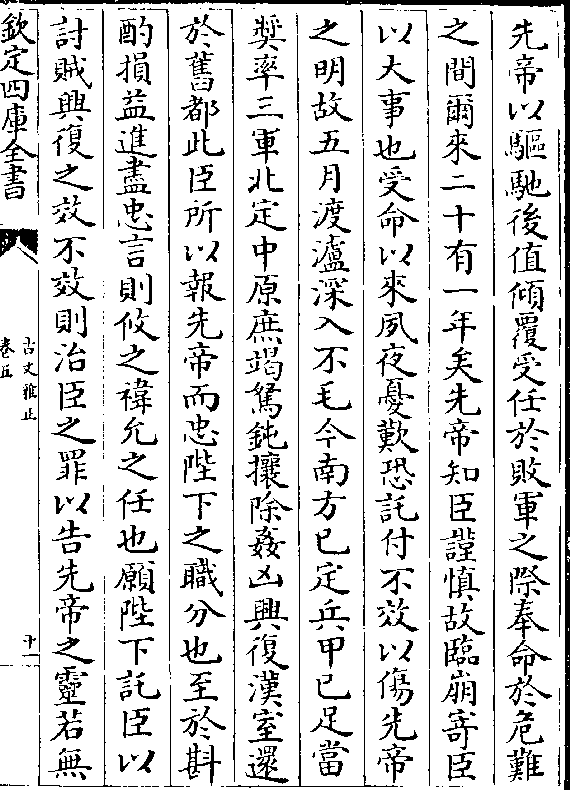 先帝以驅馳後值傾覆受任於敗軍之際奉命於危難
之間爾來二十有一年矣先帝知臣謹慎故臨崩寄臣
以大事也受命以來夙夜憂歎恐託付不效以傷先帝
之明故五月渡瀘深入不毛今南方已定兵甲已足當
奬率三軍北定中原庶竭駑鈍攘除姦凶興復漢室還
於舊都此臣所以報先帝而忠陛下之職分也至於斟
酌損益進盡忠言則攸之褘允之任也願陛下託臣以
討賊興復之效不效則治臣之罪以告先帝之靈若無
欽定四庫全書
古文雅正
卷五
十一